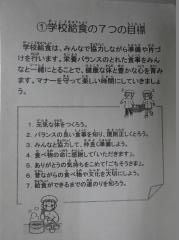 ①学校給食の7つの目標
学校給食は、みんなで協力しながら準備や片づ
けを行います。栄養バランスのとれた食事をみん
なと一緒にとることで、健康な体と豊かな心を育み
ます。マナーを守って楽しい時間にしていきましょ
う。
1. 元気な体をつくろう。
2. バランスの良い食事を知り、規則正しくとろう。
3. みんなと協力して、仲良く準備しよう。
4. 食べ物の命に感謝して「いただきます」。
5. ありがとうの気持ちをこめて「ごちそうさま」。
6. 昔ながらの食べ物や文化を大切にしよう。
7. 給食ができるまでの道のりを知ろう。